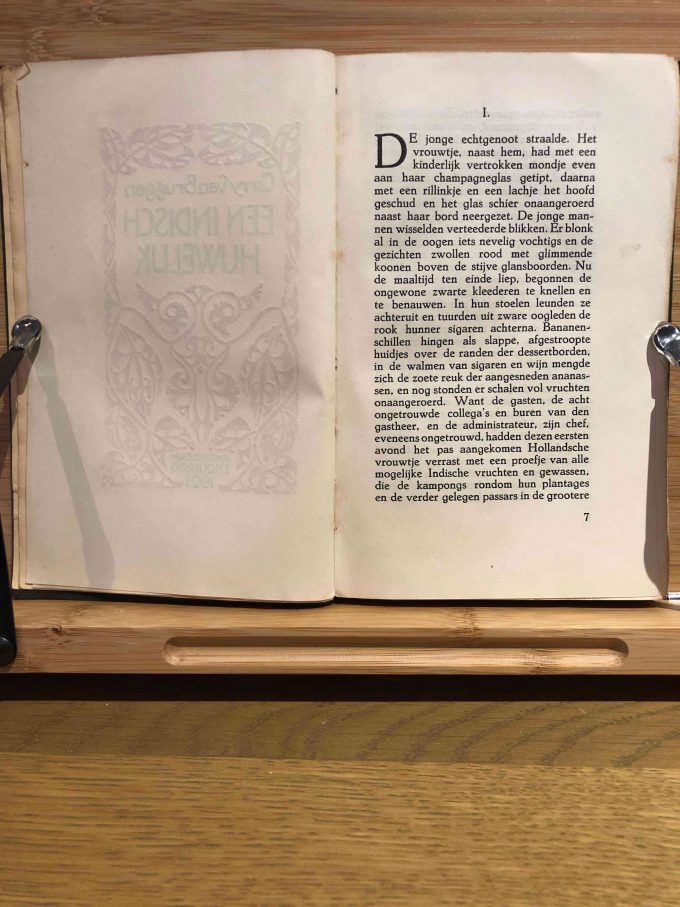 Carry van Bruggen
EEN INDISCH
HUWELIJK
AMSTERDAM
1921
I.
DE jonge echtgenoot straalde. Het
vrouwtje, naast hem, had met een
kinderlijk vertrokken mondje even
aan haar champagneglas getipt, daarna
met een rillinkje en een lachje het hoofd
geschud en het glas schier onaangeroerd
naast haar bord neergezet. De jonge man-
nen wisselden verteederde blikken. Er blonk
al in de oogen iets nevelig vochtigs en de
gezichten zwollen rood met glimmende
koonen boven de stijve glansboorden. Nu
de maaltijd ten einde liep, begonnen de
ongewone zwarte kleederen te knellen en
te benauwen. In hun stoelen leunden ze
achteruit en tuurden uit zware oogleden de
rook hunner sigaren achterna. Bananen-
schillen hingen als slappe, afgestroopte
huidjes over de randen der dessertborden,
in de walmen van sigaren en wijn mengde
zich de zoete reuk der aangesneden ananas-
sen, en nog stonden er schalen vol vruchten
onaangeroerd. Want de gasten, de acht
ongetrouwde collega's en buren van den
gastheer, en de administrateur, zijn chef,
eveneens ongetrouwd, hadden dezen eersten
avond het pas aangekomen Hollandsche
vrouwtje verrast met een proefje van alle
mogelijke Indische vruchten en gewassen,
die de kampongs rondom hun plantages
en de verder gelegen passars in de grootere
7